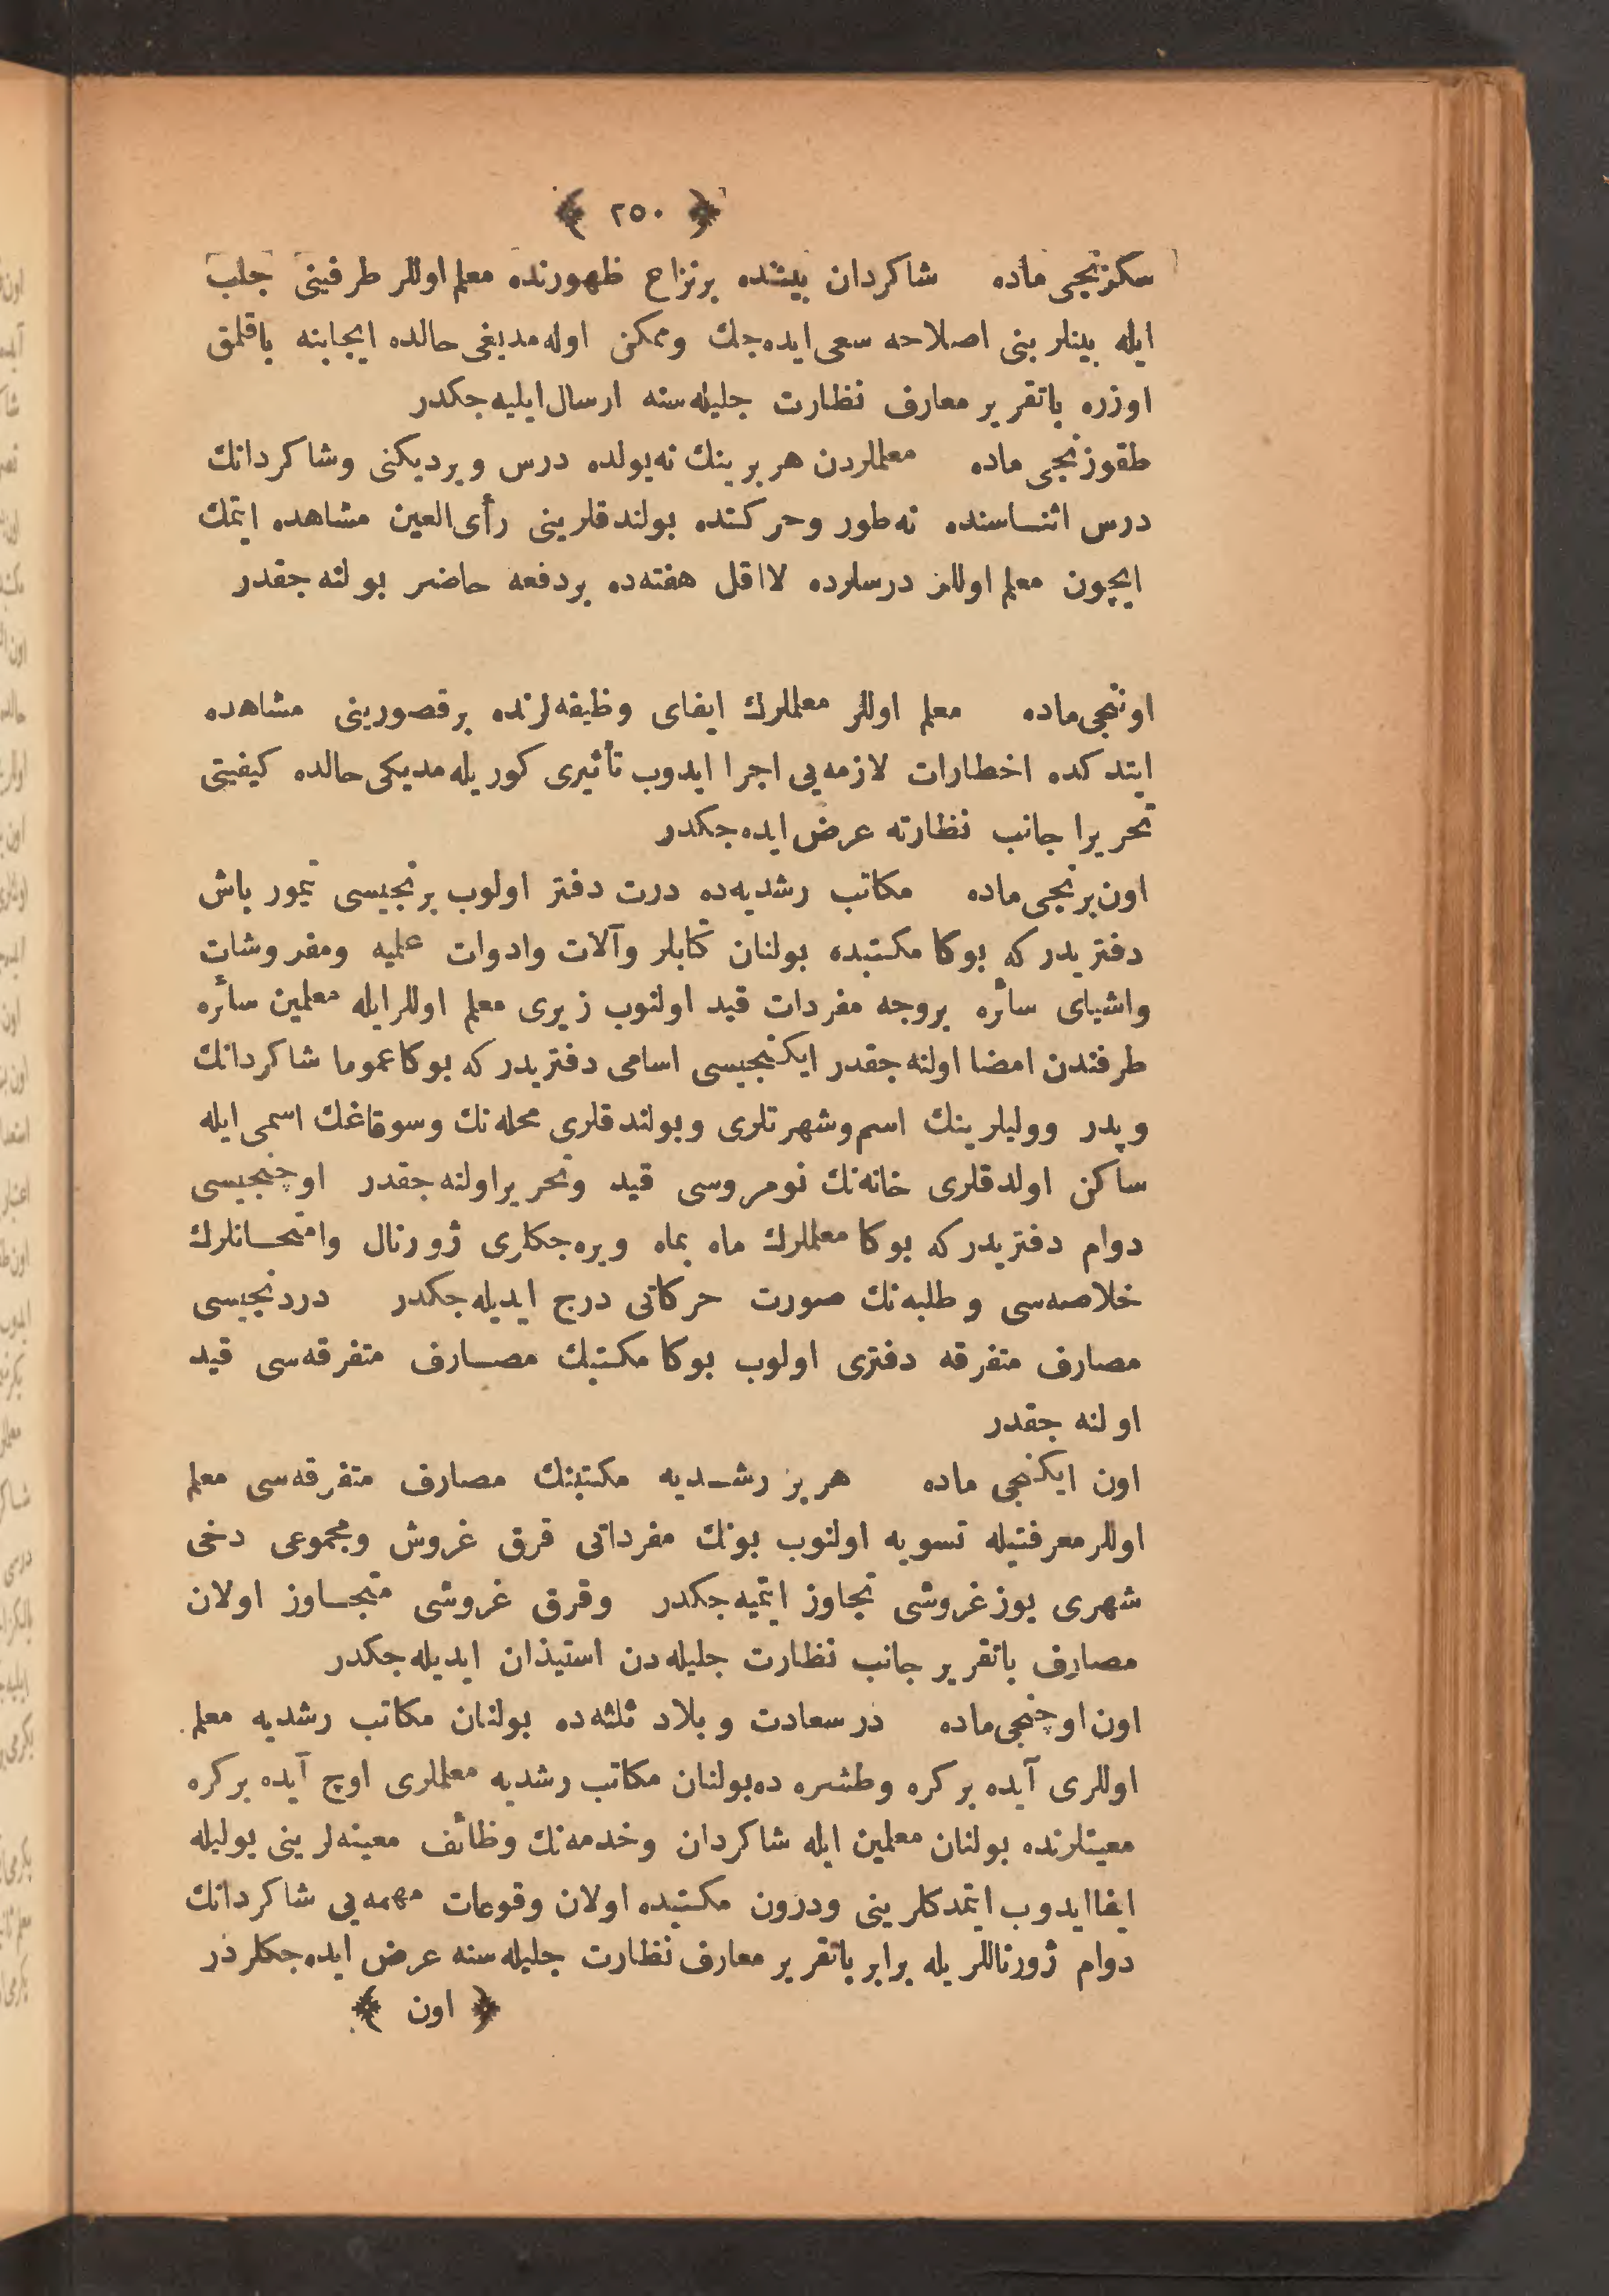 ﴿ ٢٥٠ ﴾
سكزنجی ماده شاكردان بیننده برنزاع ظهورنده معلم اوللر طرفینی جلب
ایله بینلرینی اصلاحه سعی ایده‌جك وممكن اوله‌مدیغی حالده ایجابنه باقلمق
اوزره باتقریر معارف نظارت جلیله‌سنه ارسال ایلیه‌جكدر
طقوزنجی ماده معلملردن هربرینك نه‌یولده درس ویردیكنی وشاكردانك
درس اثناسنده نه‌طور وحركتده بولندقلرینی رأی العین مشاهده ایتمك
ایچون معلم اوللر درسلرده لااقل هفته‌ده بردفعه حاضر بولنه‌جقدر
اوننجی ماده معلم اوللر معلملرك ایفای وظیفه‌لرنده برقصورینی مشاهده
ایتدكده اخطارات لازمه‌یی اجرا ایدوب تأثیری كوریله‌مدیكی حالده كیفیتی
تحریرا جانب نظارته عرض ایده‌جكدر
اون‌برنجی ماده مكاتب رشدیه‌ده درت دفتر اولوب برنجیسی تیمور باش
دفتریدر كه بوكا مكتبده بولنان كتابلر وآلات وادوات علمیه ومفروشات
واشیای سائره بروجه مفردات قید اولنوب زیری معلم اوللرایله معلمین سائره
طرفندن امضا اولنه‌جقدر ایكنجیسی اسامی دفتریدر كه بوكا عموما شاكردانك
وپدر وولیلرینك اسم وشهرتلری وبولندقلری محله‌نك وسوقاغك اسمی ایله
ساكن اولدقلری خانه‌نك نومروسی قید وتحریراولنه‌جقدر اوچنجیسی
دوام دفتریدر كه بوكا معلملرك ماه بماه ویره‌جكلری ژورنال وامتحانلرك
خلاصه‌سی وطلبه‌نك صورت حركاتی درج ایدیله‌جكدر دردنجیسی
مصارف متفرقه دفتری اولوب بوكا مكتبك مصارف متفرقه‌سی قید
اولنه جقدر
اون ایكنجی ماده هربر رشدیه مكتبنك مصارف متفرقه‌سی معلم
اوللر معرفتیله تسویه اولنوب بونك مفرداتی قرق غروش ومجموعی دخی
شهری یوزغروشی تجاوز ایتمیه‌جكدر وقرق غروشی متجاوز اولان
مصارف باتقریر جانب نظارت جلیله‌دن استیذان ایدیله‌جكدر
اون‌اوچنجی ماده درسعادت وبلاد ثلثه‌ده بولنان مكاتب رشدیه معلم
اوللری آیده بركره وطشره ده‌بولنان مكاتب رشدیه معلملری اوچ آیده بركره
معیتلرنده بولنان معلمین ایله شاكردان وخدمه‌نك وظائف معینه‌لرینی یولیله
ایفاایدوب ایتمدكلرینی ودرون مكتبده اولان وقوعات مهمه‌یی شاكردانك
دوام ژورناللریله برابر باتقریر معارف نظارت جلیله‌سنه عرض ایده‌جكلردر
﴿ اون ﴾